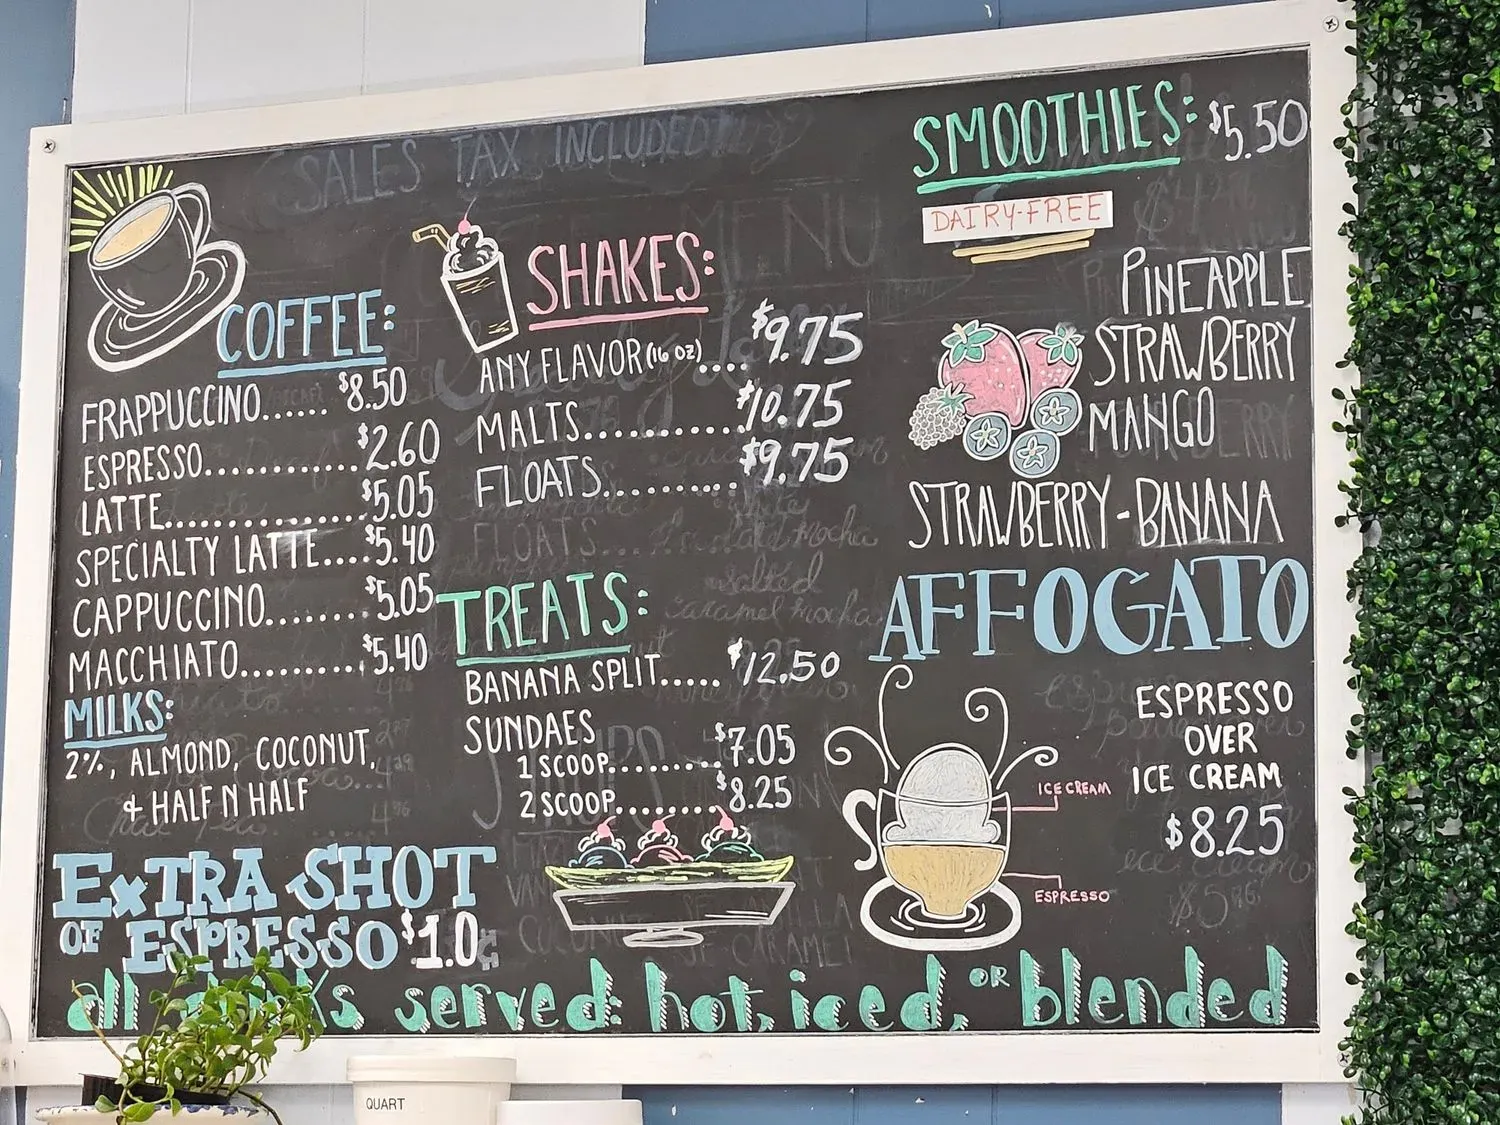 SALES TAX INCLUDED
COFFEE:
FRAPPUCCINO...... $8.50
ESPRESSO............$2.60
LATTE...............$5.05
SPECIALTY LATTE....$5.40
CAPPUCCINO.......$5.05
MACCHIATO.........$5.40
MILKS:
2%, ALMOND, COCONUT,
& HALF N HALF
EXTRA SHOT
OF ESPRESSO $1.0
SHAKES:
ANY FLAVOR (16 OZ) .... $9.75
MALTS............$10.75
FLOATS..........$9.75
FLOATS...
TREATS:
BANANA SPLIT..... $12.50
SUNDAES
1 SCOOP.........$7.05
2 SCOOP........$8.25
SMOOTHIES: $5.50
DAIRY-FREE
PINEAPPLE
STRAWBERRY
MANGO
STRAWBERRY-BANANA
AFFOGATO
ESPRESSO
OVER
ICE CREAM
$8.25
ICE CREAM
ESPRESSO
all drinks served: hot, iced, OR blended
QUART